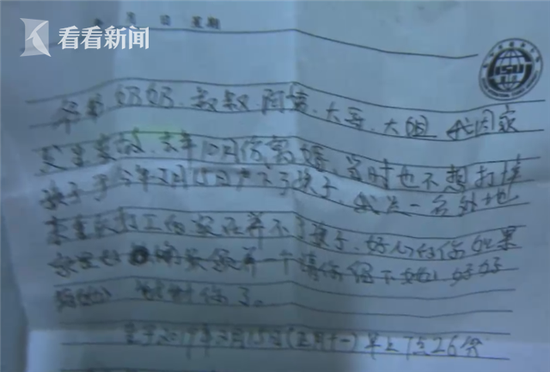 看看新闻
KANKANEWS
年 月 日 星期
爷爷奶奶、叔叔阿姨、大哥、大姐 我因家
发生变故,去年10月份离婚,当时也不想打掉
孩子于今年2月15日产下了孩子,我是一名外地
来重庆打工的实在养不了孩子,好心的你如果
家里 请你留下她,好好
谢谢你了。
生于2019年2月15日(正月十一)早上7点26分